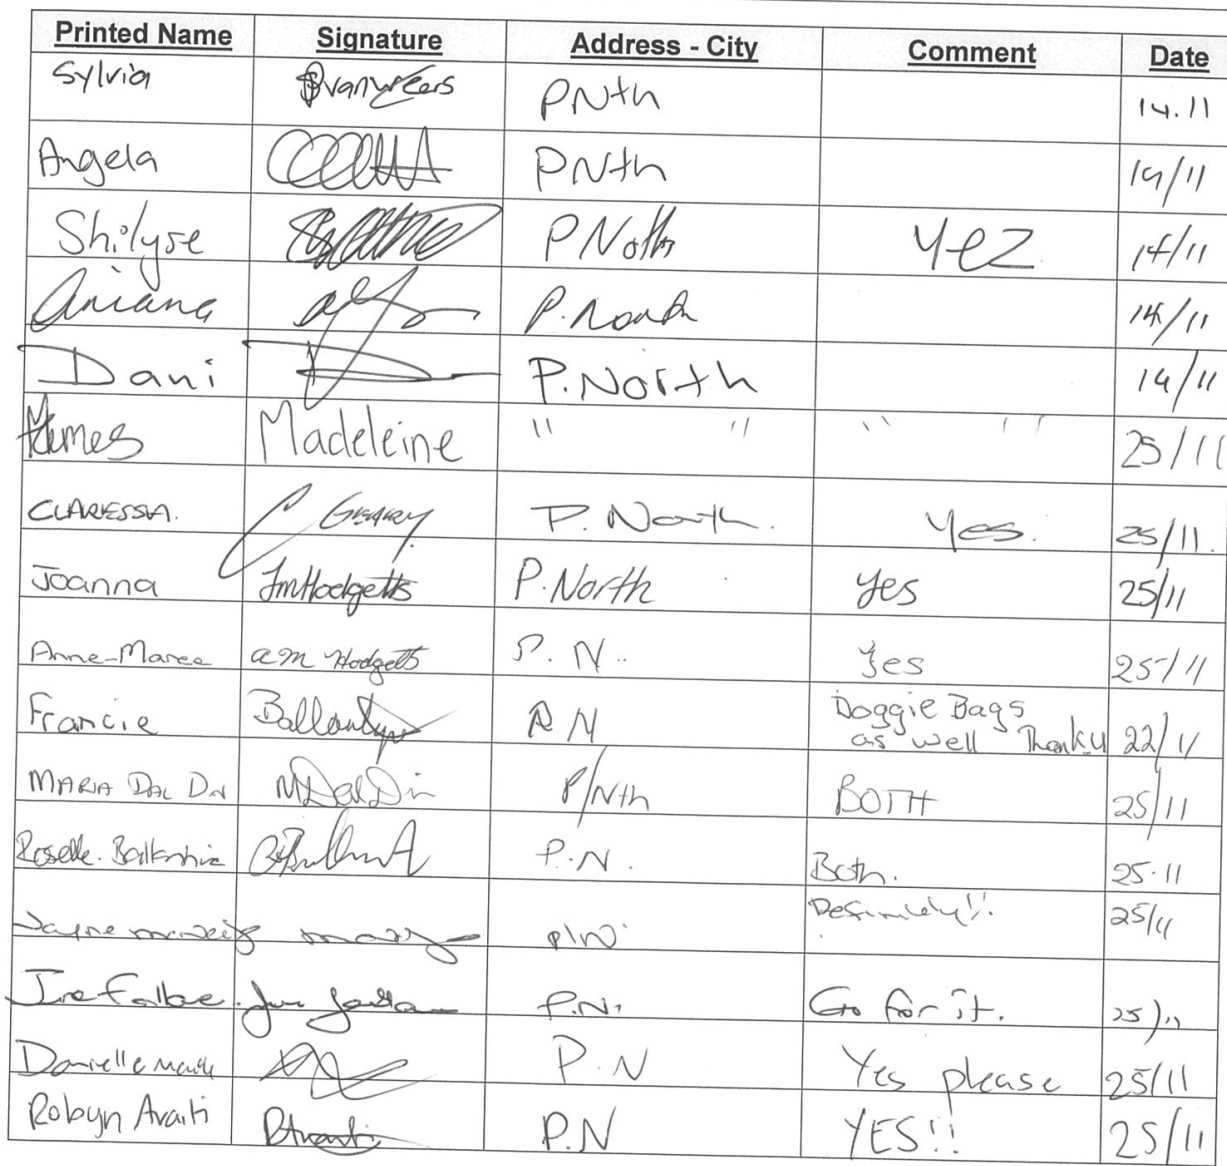 Printed Name Signature Address - City Comment Date
Sylvia PNth 14.11
Angela PNth 14/11
Shilyse P Noth Yez 14/11
Ariana P. North 14/11
Dani P. North 14/11
Madeleine " " " " 25/11
CLARESSA. C GEARY P. North. Yes. 25/11.
Joanna JmHodgetts P. North yes 25/11
Anne-Maree am Hodgetts P. N.. yes 25/11
Francie Ballantyne P N Doggie Bags
as well Thanku 22/11
MARIA DAL DIN MDalDin P/Nth BOTH 25/11
Roselle. P.N. Both. 25.11
Jayne P/N. Definitely!! 25/11
P.N. Go for it. 25/11
Danielle P.N Yes please 25/11
Robyn Avaiti P.N YES!! 25/11